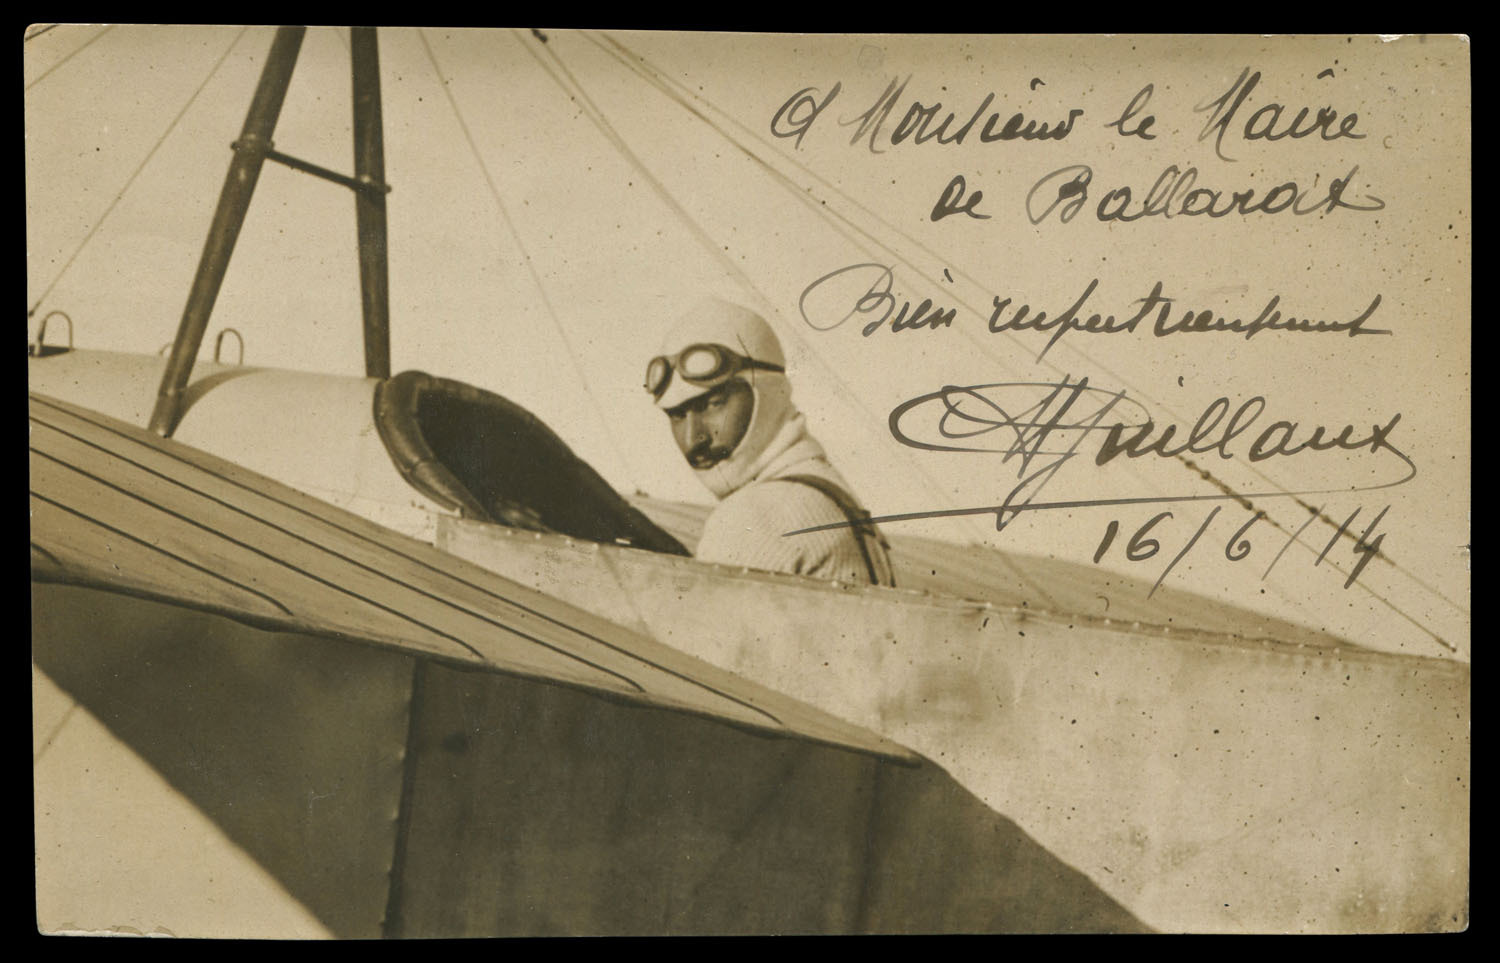 A Monsieur le Maire
de Ballarat
Bien respectueusement
M Guillaux
16/6/14